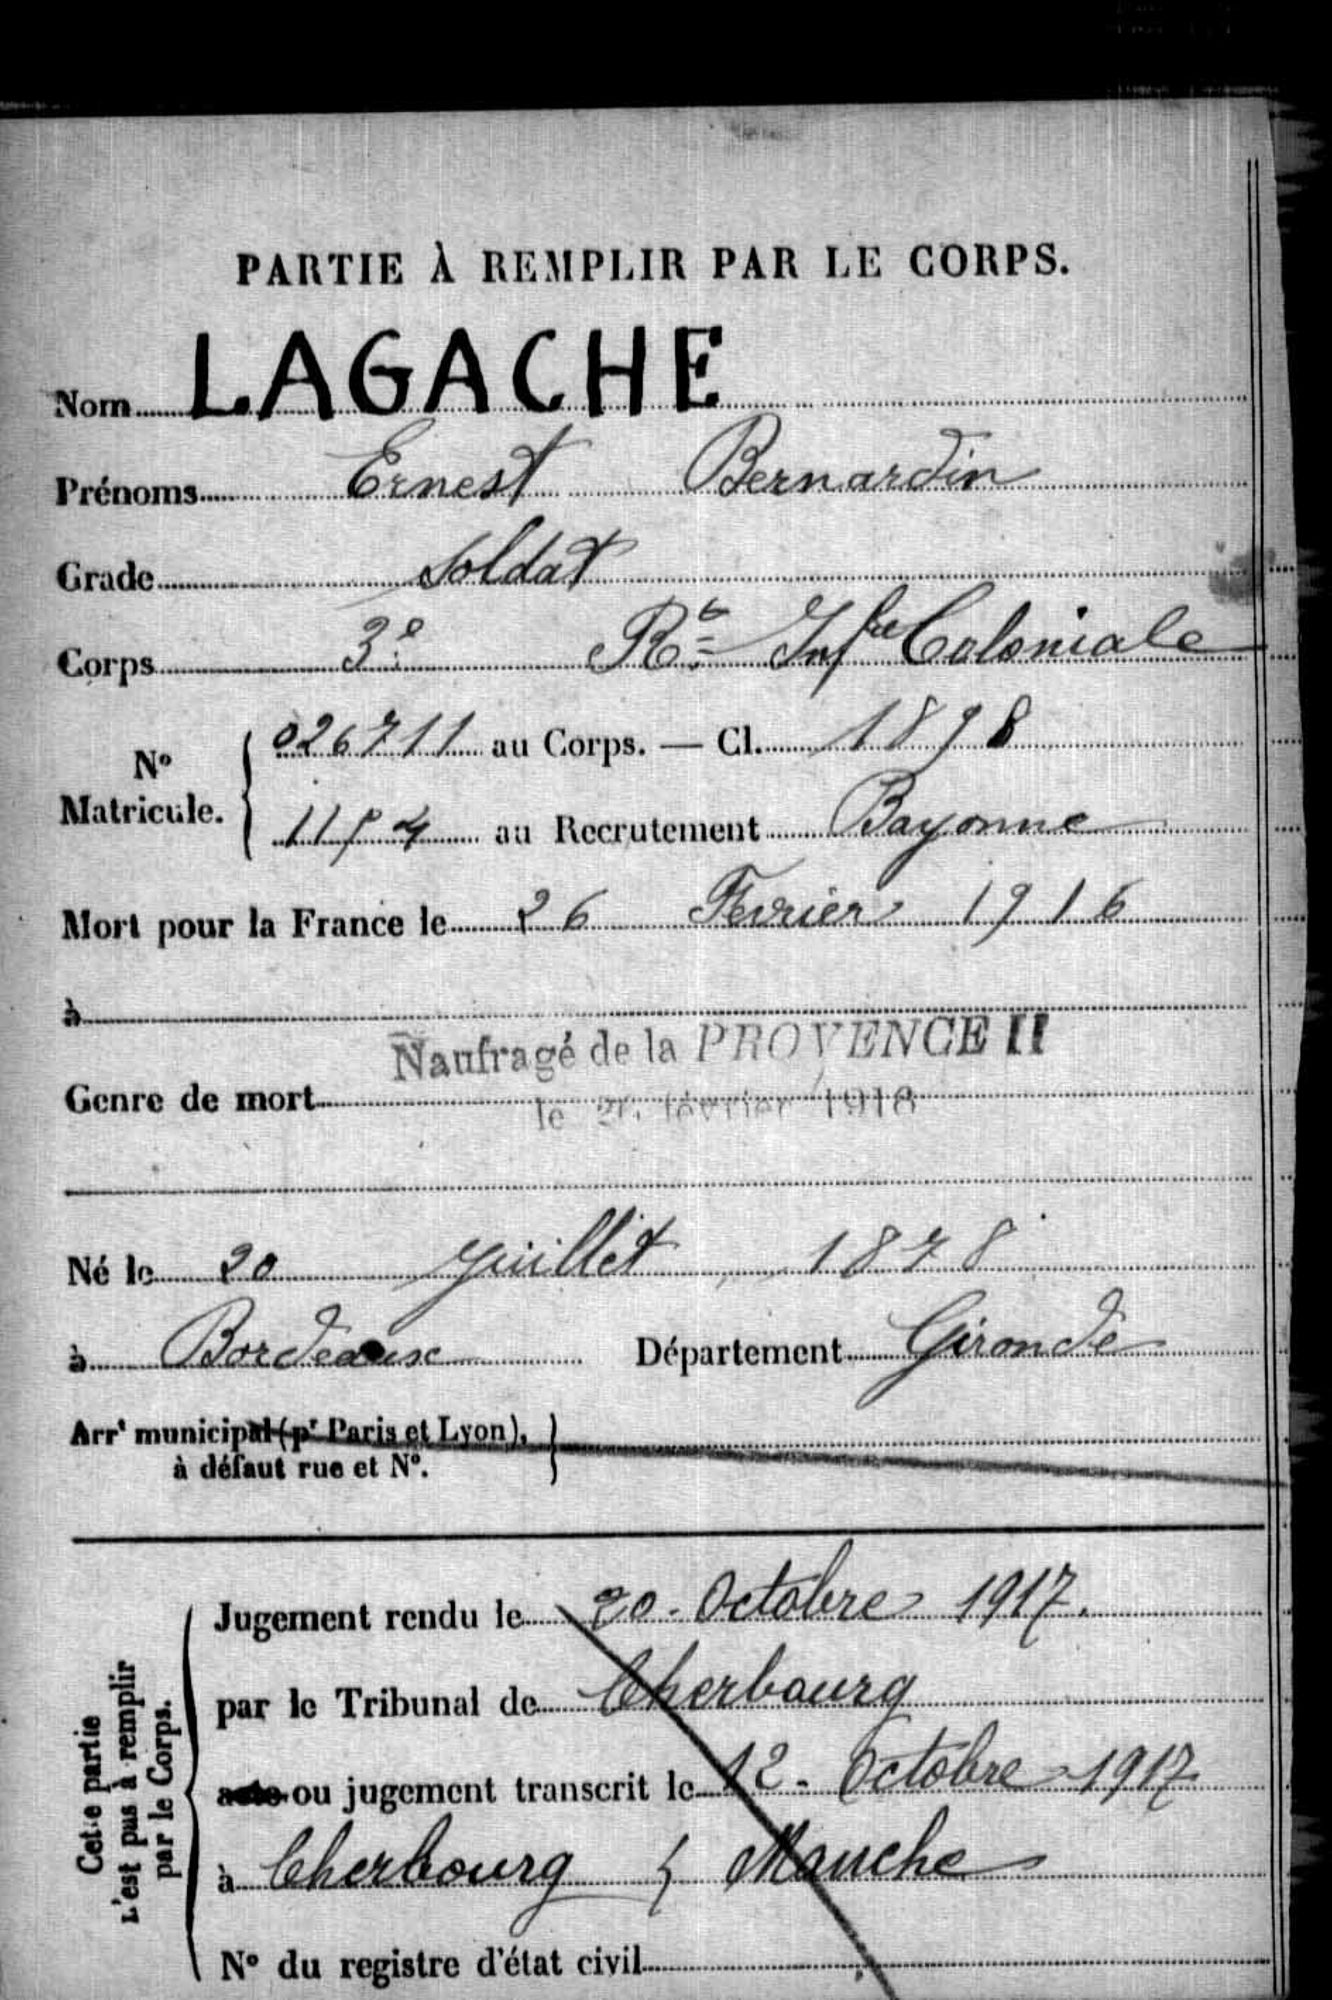 PARTIE À REMPLIR PAR LE CORPS.
Nom LAGACHE
Prénoms Ernest Bernardin
Grade Soldat
Corps 3e Rt Infrie Coloniale
No Matricule. 026711 au Corps. — Cl. 1898
au Recrutement Bayonne
Mort pour la France le 26 Fevrier 1916
à
Naufragé de la PROVENCE II
Genre de mort
le 26 février 1916
Né le 20 Juillet 1878
à Bordeaux Département Gironde
Arrt municipal (pr Paris et Lyon),
à défaut rue et No.
Cette partie
n'est pas à remplir
par le Corps.
Jugement rendu le 20. Octobre 1917.
par le Tribunal de Cherbourg
acte ou jugement transcrit le 12. Octobre 1917
à Cherbourg Manche
No du registre d'état civil